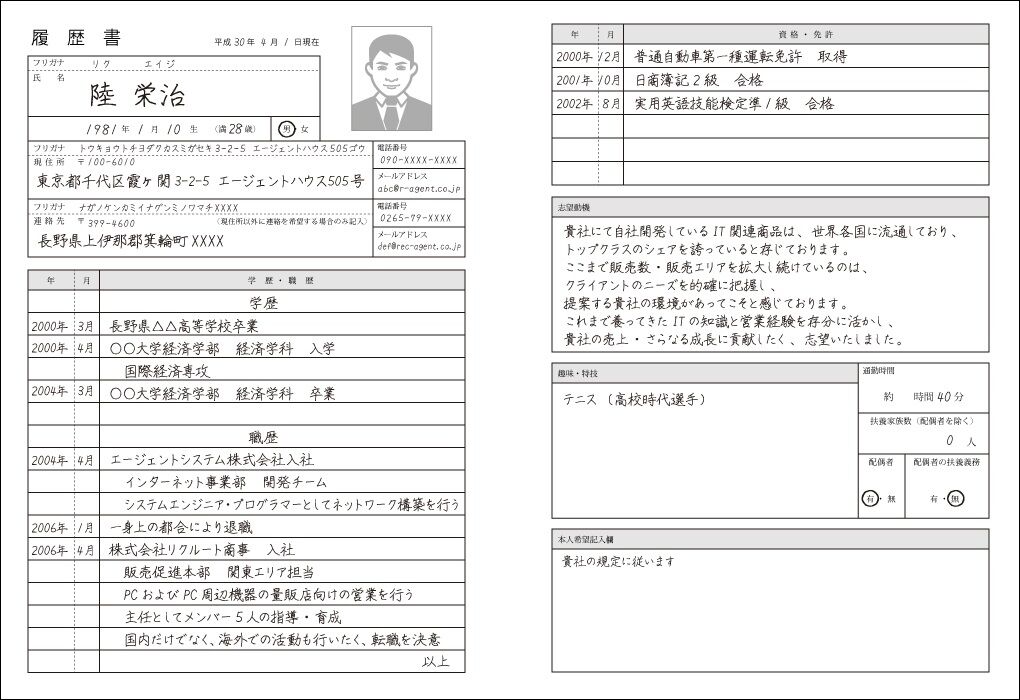 履歴書
平成30年 4月 1日現在
フリガナ リク エイジ
氏名
陸 栄治
1981年 1月 10生 (満28歳) 男 女
フリガナ トウキョウトチヨダクカスミガセキ3-2-5 エージェントハウス505ゴウ
現住所 〒100-6010
東京都千代区霞ヶ関3-2-5 エージェントハウス505号
電話番号
090-XXXX-XXXX
メールアドレス
abc@r-agent.co.jp
フリガナ ナガノケンカミイナグンミノワマチXXXX
連絡先 〒399-4600 (現住所以外に連絡を希望する場合のみ記入)
長野県上伊那郡箕輪町XXXX
電話番号
0265-79-XXXX
メールアドレス
def@rec-agent.co.jp
年 月 学歴・職歴
学歴
2000年 3月 長野県△△高等学校卒業
2000年 4月 〇〇大学経済学部 経済学科 入学
国際経済専攻
2004年 3月 〇〇大学経済学部 経済学科 卒業
職歴
2004年 4月 エージェントシステム株式会社入社
インターネット事業部 開発チーム
システムエンジニア・プログラマーとしてネットワーク構築を行う
2006年 1月 一身上の都合により退職
2006年 4月 株式会社リクルート商事 入社
販売促進本部 関東エリア担当
PCおよびPC周辺機器の量販店向けの営業を行う
主任としてメンバー5人の指導・育成
国内だけでなく、海外での活動も行いたく、転職を決意
以上
年 月 資格・免許
2000年 12月 普通自動車第一種運転免許 取得
2001年 10月 日商簿記2級 合格
2002年 8月 実用英語技能検定準1級 合格
志望動機
貴社にて自社開発しているIT関連商品は、世界各国に流通しており、
トップクラスのシェアを誇っていると存じております。
ここまで販売数・販売エリアを拡大し続けているのは、
クライアントのニーズを的確に把握し、
提案する貴社の環境があってこそと感じております。
これまで養ってきたITの知識と営業経験を存分に活かし、
貴社の売上・さらなる成長に貢献したく、志望いたしました。
趣味・特技
テニス (高校時代選手)
通勤時間
約 時間40分
扶養家族数(配偶者を除く)
0 人
配偶者
有・無
配偶者の扶養義務
有・無
本人希望記入欄
貴社の規定に従います